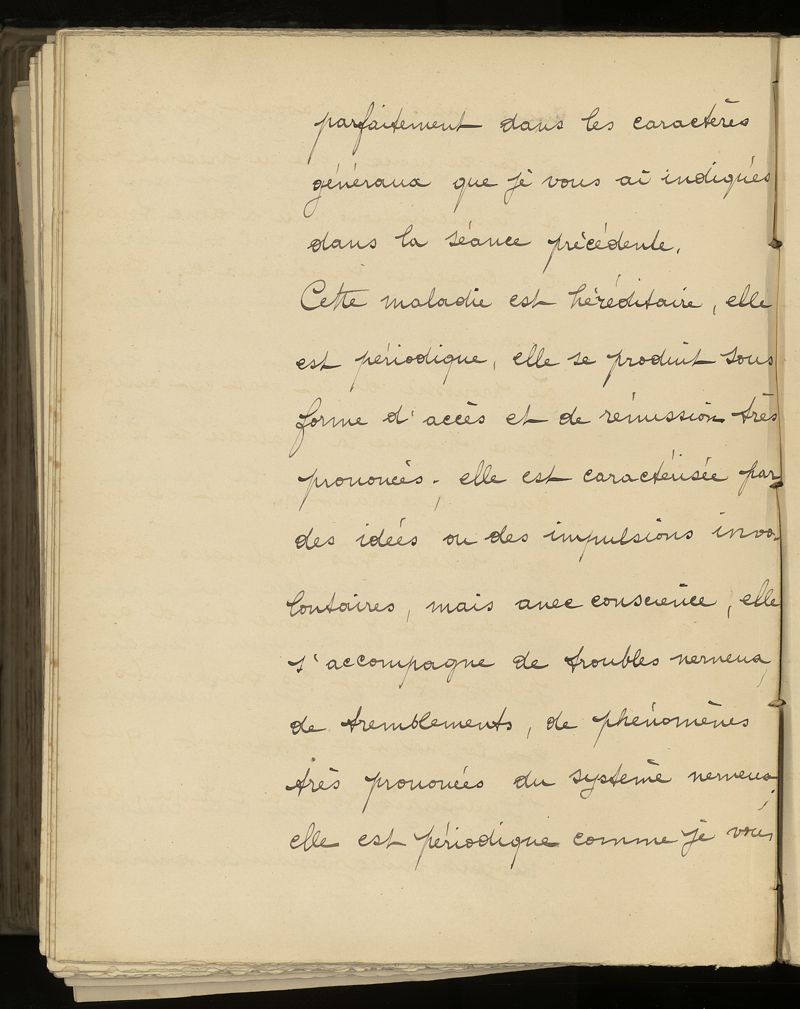 parfaitement dans les caractères
généraux que je vous ai indiqués
dans la séance précédente.
Cette maladie est héréditaire, elle
est périodique, elle se produit sous
forme d'accès et de rémission très
prononcés ; elle est caractérisée par
des idées ou des impulsions invo-
lontaires, mais avec conscience, elle
s'accompagne de troubles nerveux,
de tremblements, de phénomènes
très prononcés du système nerveux,
elle est périodique comme je vous